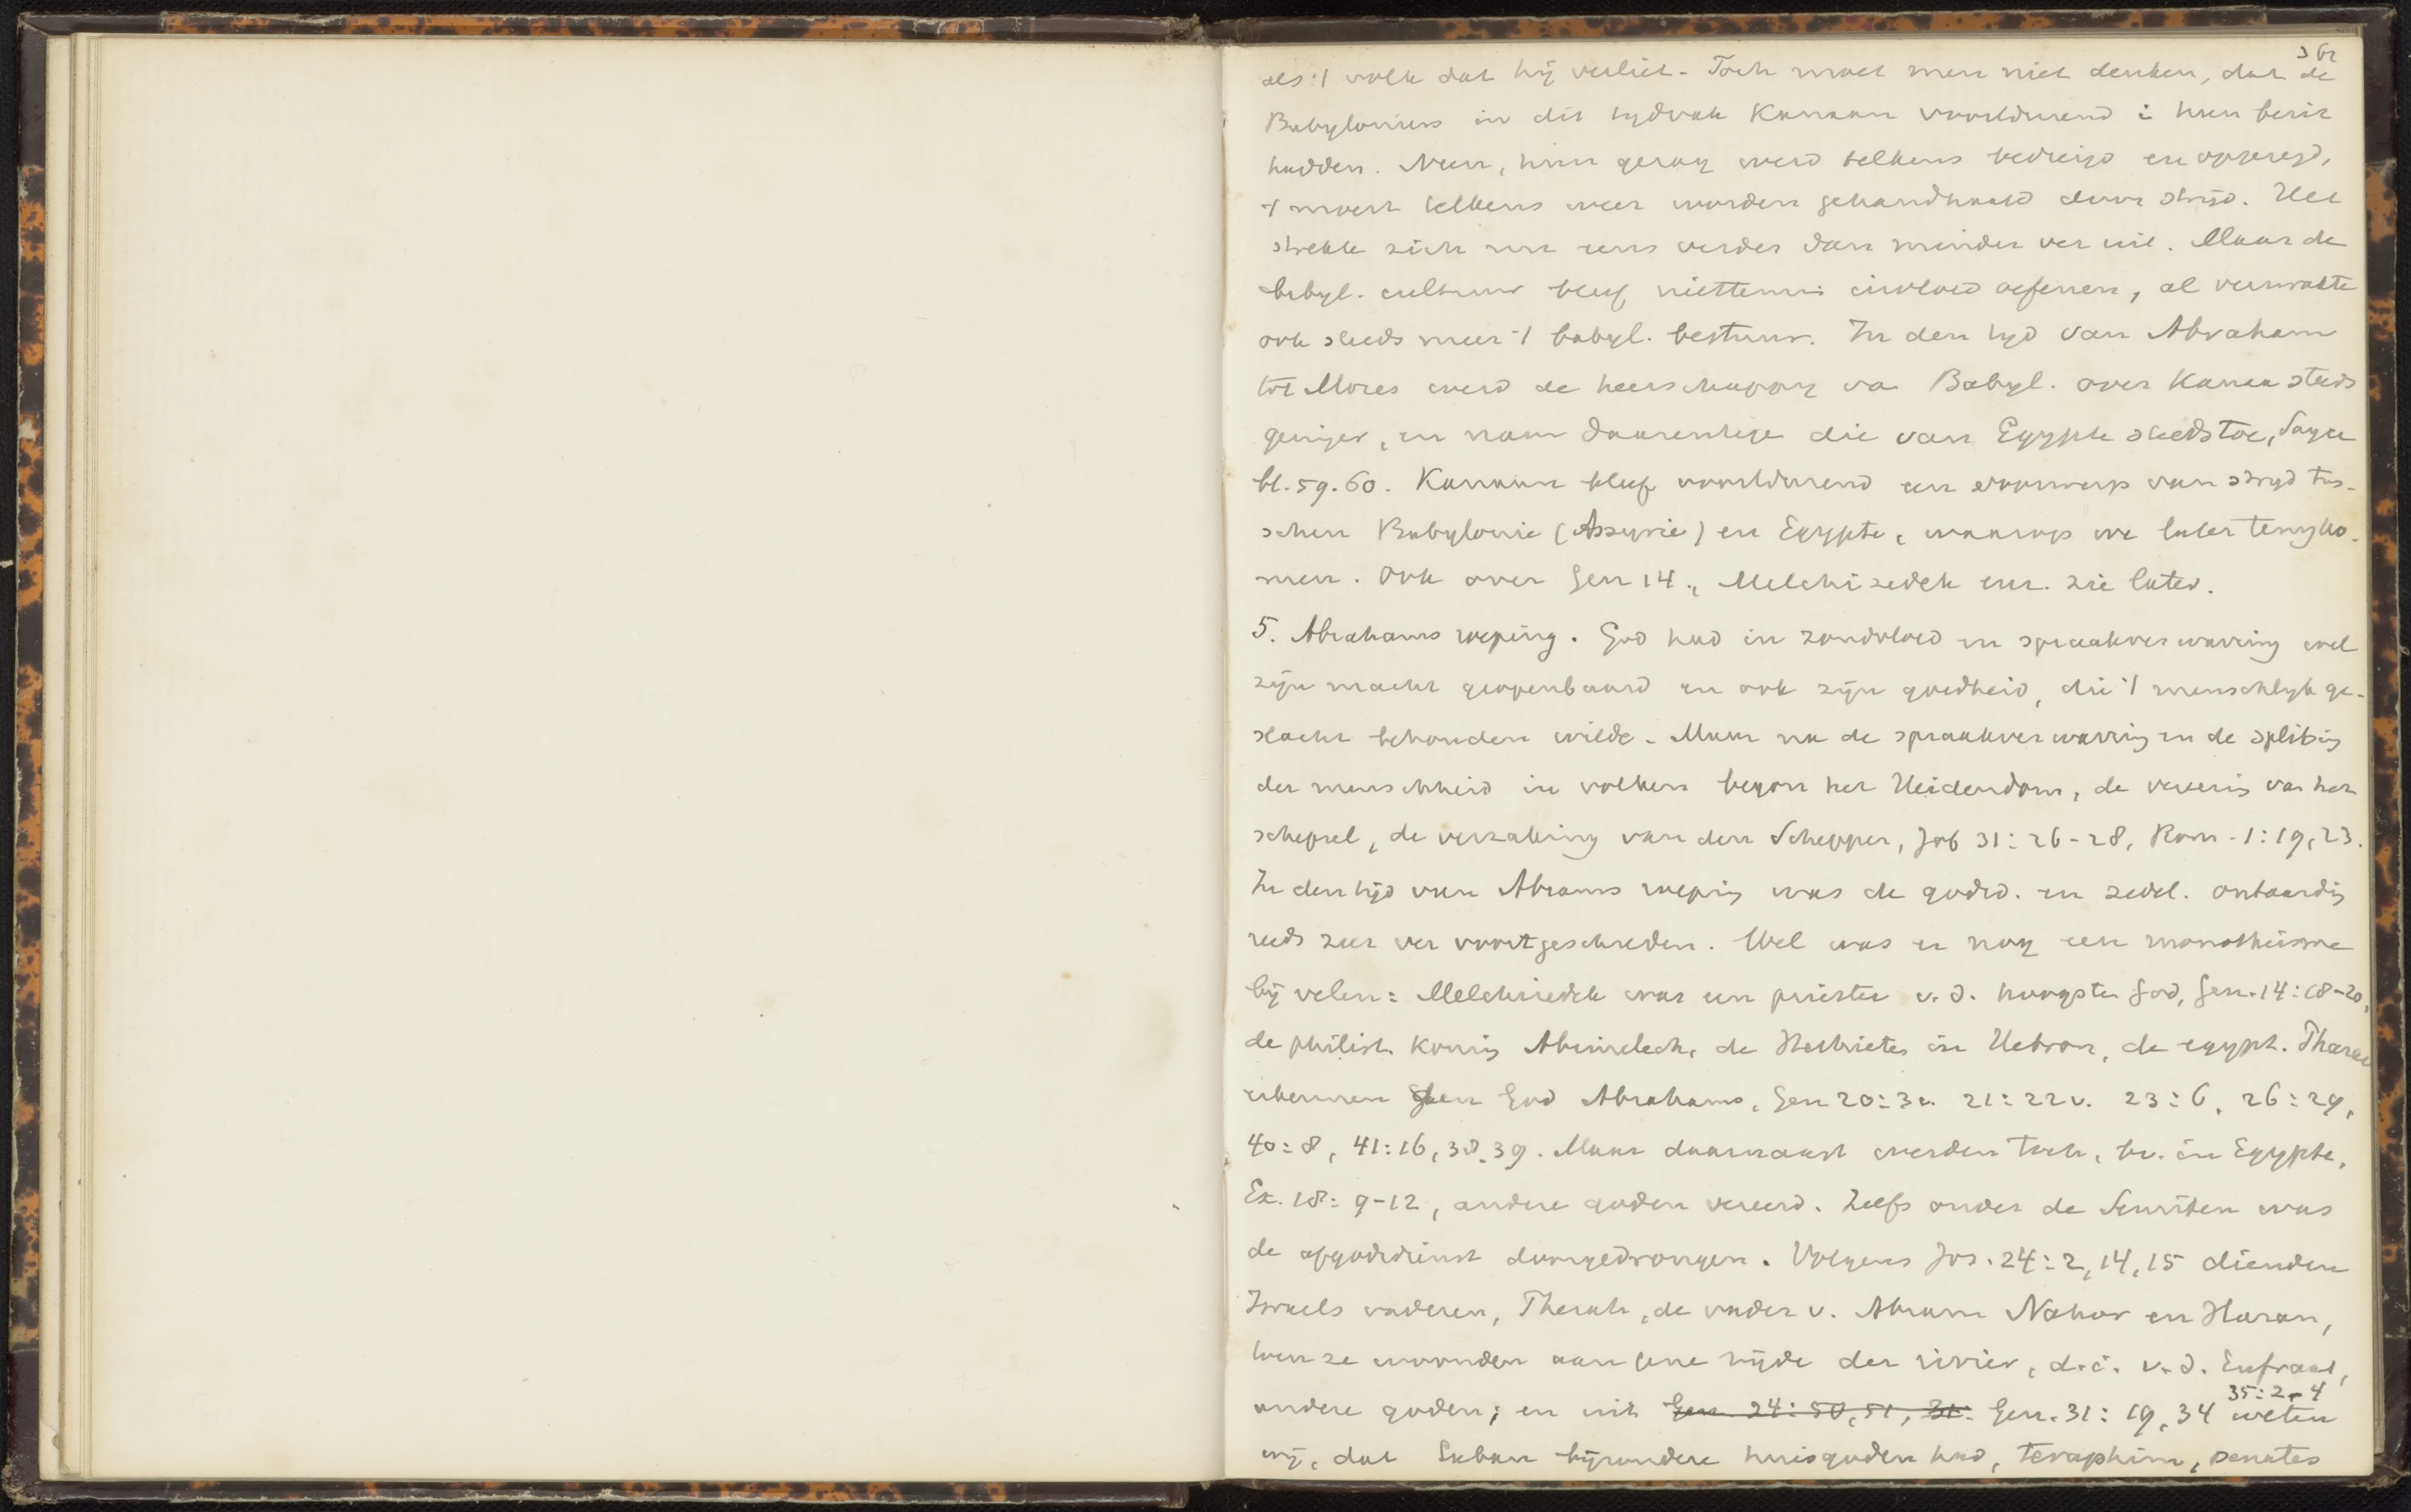 36r
als 't volk dat hij verliet. Toch moet men niet denken, dat de
Babyloniers in dit tijdvak Kanaan voortdurend in hun bezit
hadden. Neen, hun gezag werd telkens bedreigd en opgezegd,
't moest telkens weer worden gehandhaafd door strijd. Het
strekte zich nu eens verder dan minder ver uit. Maar de
babyl. cultuur bleef niettemin invloed oefenen, al verzwakte
ook steeds meer 't babyl. bestuur. In den tijd van Abraham
tot Mozes werd de heerschappij va Babyl. over Kanaan steeds
geringer, en nam daarentege die van Egypte steeds toe, Sayce
bl. 59. 60. Kanaan bleef voortdurend een voorwerp van strijd tus-
schen Babylonie (Assyrie) en Egypte, waarop we later terugko-
men. Ook over Gen 14., Melchizedek enz. zie later.
5. Abrahams roeping. God had in zondvloed en spraakverwarring wel
zijn macht geopenbaard en ook zijn goedheid, die 't menschlijk ge-
slacht behouden wilde. Maar na de spraakverwarring en de splitsing
der menschheid in volken begon het Heidendom, de vereering van het
schepsel, de verzaking van den Schepper, Job 31: 26-28, Rom. 1: 19, 23.
In den tijd van Abrams roeping was de godsd. en zedel. ontaarding
reeds zeer ver voortgeschreden. Wel was er nog een monotheisme
bij velen: Melchizedek was een priester v. d. hoogsten God, Gen. 14: 18-20,
de philist. koning Abimelech, de Hethieten in Hebron, de egypt. Pharao
erkennen den God Abrahams, Gen 20: 3v. 21: 22v. 23: 6, 26: 29,
40: 8, 41: 16, 38, 39. Maar daarnaast werden toch, bv. in Egypte,
Ex. 18: 9-12, andere goden vereerd. Zelfs onder de Semiten was
de afgodsdienst doorgedrongen. Volgens Joz. 24: 2, 14, 15 dienden
Israels vaderen, Therah, de vader v. Abram Nahor en Haran,
toen ze woonden aan gene zijde der rivier, d. i. v. d. Eufraat,
35: 2-4
andere goden; en uit Gen 24: 50, 51, 31: Gen. 31: 19, 34 weten
wij, dat Laban bijzondere huisgoden had, teraphim, penates